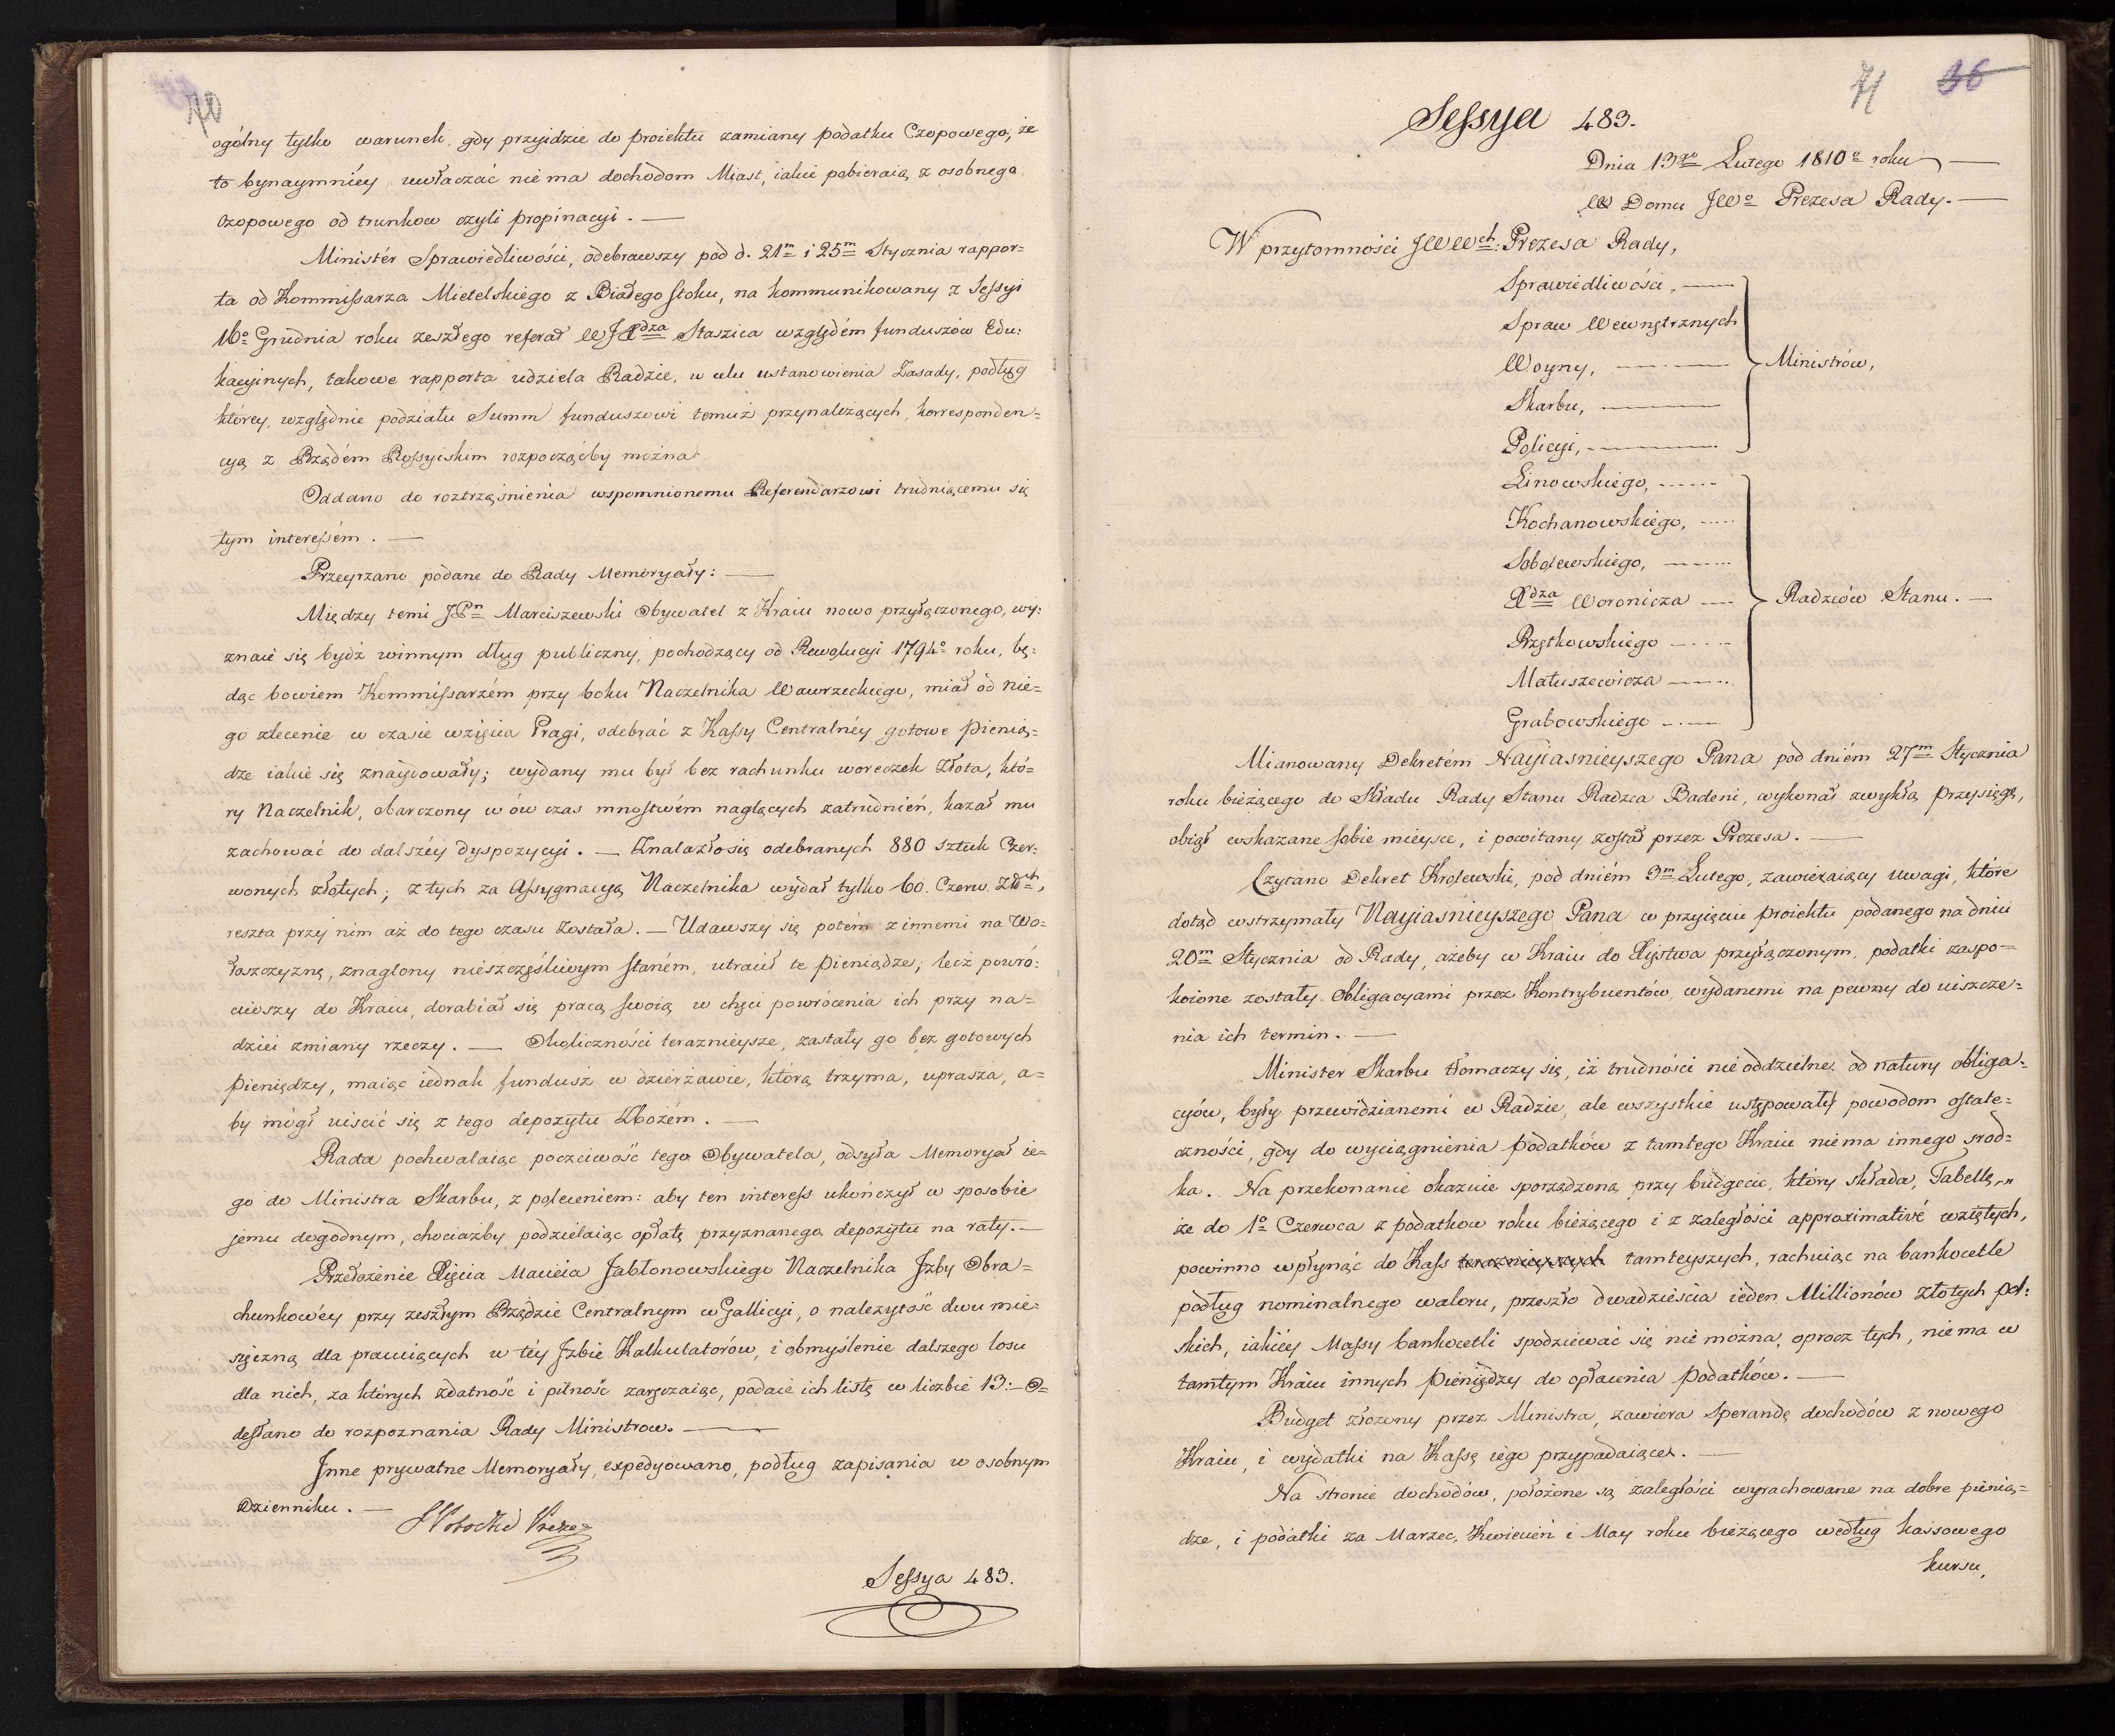 70
ogólny tylko warunek, gdy przyjdzie do proiektu zamiany podatku Czopowego, że
to bynaymniéy uwłaczać nie ma dochodom Miast, iakie pobieraią z osobnego
czopowego od trunkow czyli propinacyi. —
Ministér Sprawiedliwości, odebrawszy pod d. 21m i 25m Stycznia rappor=
ta od Kommißarza Mietelskiego z Białego stoku, na kommunikowany z Seßyi
16o Grudnia roku zeszłego referat WJXdza Staszica względém funduszów Edu:
kacyinych, takowe rapporta udziela Radzie, w celu ustanowienia Zasady, podług
któréy, względnie podziału Summ funduszowi temuż przynależących, korresponden=
cyą z Rządém Roßyiskim rozpocząćby można.
Oddano do roztrząśnienia wspomnionemu Referendarzowi trudniącemu się
tym intereßém. —
Przeyrzano podane do Rady Memoryały: —
Między temi JPn Marciszewski Obywatel z Kraiu nowo przyłączonego, wy:
znaie się bydź winnym dług publiczny, pochodzący od Rewolucyi 1794o roku, bę:
dąc bowiem Kommißarzém przy boku Naczelnika Wawrzeckiego, miał od nie=
go zlecenie w czasie wzięcia Pragi, odebrać z Kaßy Centralnéy gotowe pienią=
dze iakie się znaydowały; wydany mu był bez rachunku woreczek złota, któ=
ry Naczelnik, obarczony w ów czas mnostwém naglących zatrudnień, kazał mu
zachować do dalszéy dyspozycyi. — Znalazło się odebranych 880 sztuk Czer:
wonych złotych; z tych za Aßygnacyą Naczelnika wydał tylko 60. Czerw. Złch,
reszta przy nim aż do tego czasu została. — Udawszy się potém z innemi na Wo=
łoszczyznę, znaglony nieszczęśliwym staném, utracił te pieniądze; lecz powró:
ciwszy do Kraiu, dorabiał się pracą swoią w chęci powrócenia ich przy na=
dziei zmiany rzeczy. — Okoliczności teraznieysze, zastały go bez gotowych
pieniędzy, maiąc iednak fundusz w dzierżawie, którą trzyma, uprasza, a=
by mógł uiścić się z tego depozytu Zbożém. —
Rada pochwalaiąc poczciwość tego Obywatela, odsyła Memoryał ie=
go do Ministra Skarbu, z poleceniem: aby ten intereß ukończył w sposobie
jemu dogodnym, chociażby podzielaiąc opłatę przyznanego depozytu na raty. —
Przełożenie Xięcia Macieia Jabłonowskiego Naczelnika Jzby Obra=
chunkowéy przy zeszłym Rządzie Centralnym w Gallicyi, o należytość dwu mie=
sięczną dla pracuiących w téy Jzbie Kalkulatorów, i obmyślenie dalszego losu
dla nich, za których zdatność i pilność zaręczaiąc, podaie ich listę w liczbie 13: — O=
desłano do rozpoznania Rady Ministrow. —
Jnne prywatne Memoryały, expedyowano, podług zapisania w osobnym
Dzienniku. —
Seßya 483.
71 36
Seßya 483.
Dnia 13go Lutego 1810o roku —
w Domu JWo Prezesa Rady. —
W przytomności JWWch: Prezesa Rady,
Sprawiedliwości, —
Spraw Wewnętrznych
Woyny, —
Ministrów,
Skarbu, —
Policyi, —
Linowskiego,
Kochanowskiego,
Sobolewskiego,
Xdza Woronicza —
Radzców Stanu. —
Rzętkowskiego
Matuszewicza
Grabowskiego
Mianowany Dekretém Nayiasnieyszego Pana pod dniém 27m Stycznia
roku bieżącego do Składu Rady Stanu Radzca Badeni, wykonał zwykłą przysięgę,
obiął wskazane sobie mieysce, i powitany został przez Prezesa. —
Czytano Dekret Krolewski, pod dniém 3m Lutego, zawieraiący uwagi, które
dotąd wstrzymały Nayiasnieyszego Pana w przyięciu proiektu podanego na dniu
20m Stycznia od Rady, ażeby w Kraiu do Xięstwa przyłączonym, podatki zaspo=
koione zostały Obligacyami przez Kontrybuentów, wydanemi na pewny do uiszcze=
nia ich termin. —
Minister Skarbu tłomaczy się, iż trudności nieoddzielne od natury obliga=
cyów, były przewidzianemi w Radzie, ale wszystkie ustępowały powodom ostate=
czności, gdy do wyciągnienia podatków z tamtego Kraiu niema innego srod=
ka. Na przekonanie okazuie sporządzoną przy budgecie, który składa, Tabellę,
że do 1o Czerwca z podatkow roku bieżącego i z zaległości approximativé wziętych,
powinno wpłynąć do Kaß teraznieyszych tamteyszych, rachuiąc na bankocetle
podług nominalnego waloru, przeszło dwadzieścia ieden Millionów złotych pol:
skich, iakiéy Maßy bankocetli spodziewać się nie można, oprocz tych, niema w
tamtym Kraiu innych pieniędzy do opłacenia podatków. —
Budget złożony przez Ministra, zawiera Sperandę dochodów z nowego
Kraiu, i wydatki na Kaßę iego przypadaiące. —
Na stronie dochodów, położone są zaległości wyrachowane na dobre pienią=
dze, i podatki za Marzec, Kwiecień i May roku bieżącego według kassowego
kursu,